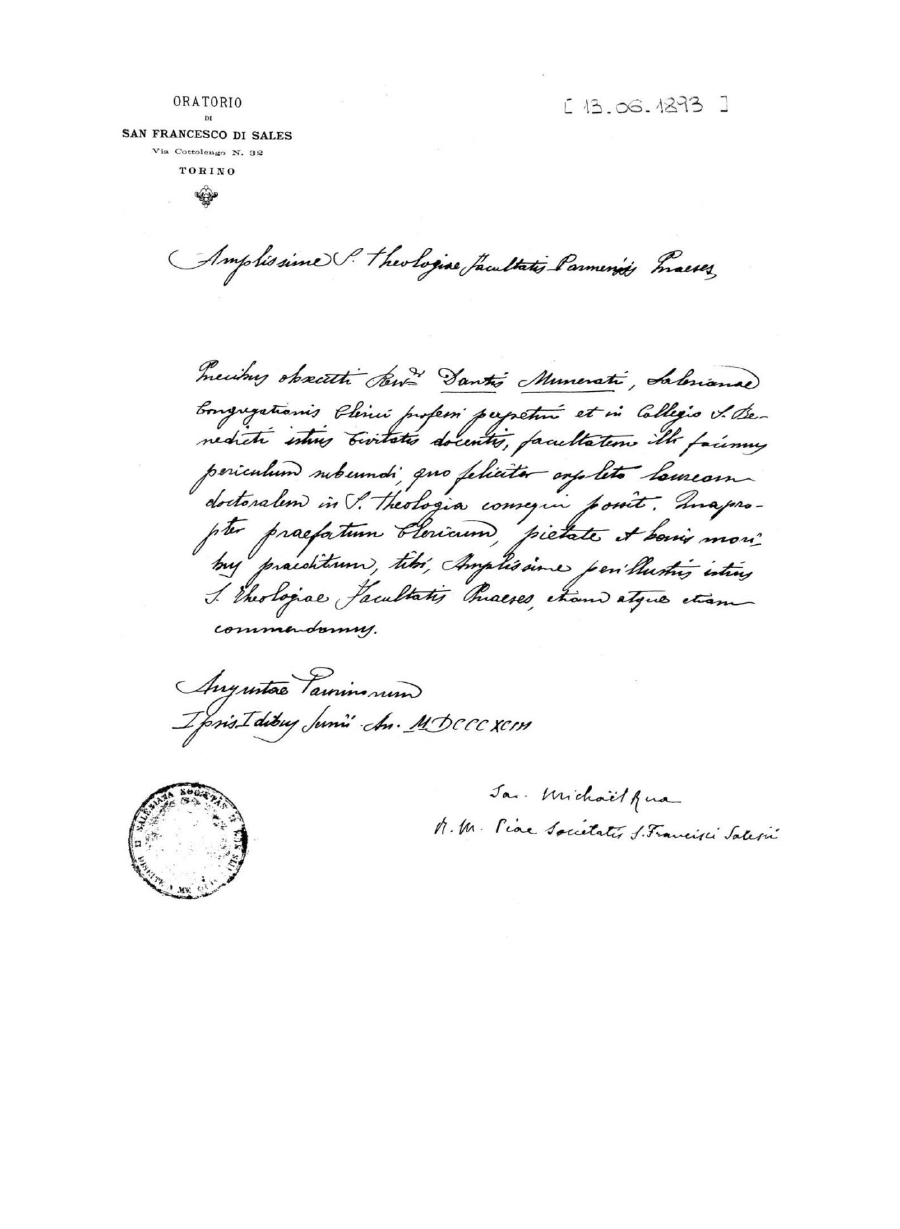 ORATORIO
DI
SAN FRANCESCO DI SALES
Via Cottolengo N. 32
TORINO
[ 13.06.1893 ]
Amplissime S. Theologiae Facultatis Parmensis Praeses,
Precibus obsecuti Rev.di Dantis Munerati, Salesianae
Congregationis Clerici professi perpetui et in Collegio S. Be-
nedicti istius Civitatis docentis, facultatem illi facimus
periculum subeundi, quo feliciter expleto lauream
doctoralem in S. Theologia consequi possit. Quapro-
pter praefatum Clericum, pietate et bonis mori-
bus praeditum, tibi, Amplissime perillustris istius
S. Theologiae Facultatis Praeses, etiam atque etiam
commendamus.
Augustae Taurinorum
Ipsis Idibus Junii An. MDCCCXCIII
Sac. Michaël Rua
R. M. Piae Societatis S. Francisci Salesii
SALESIANA SOCIETAS
DISCITE A ME